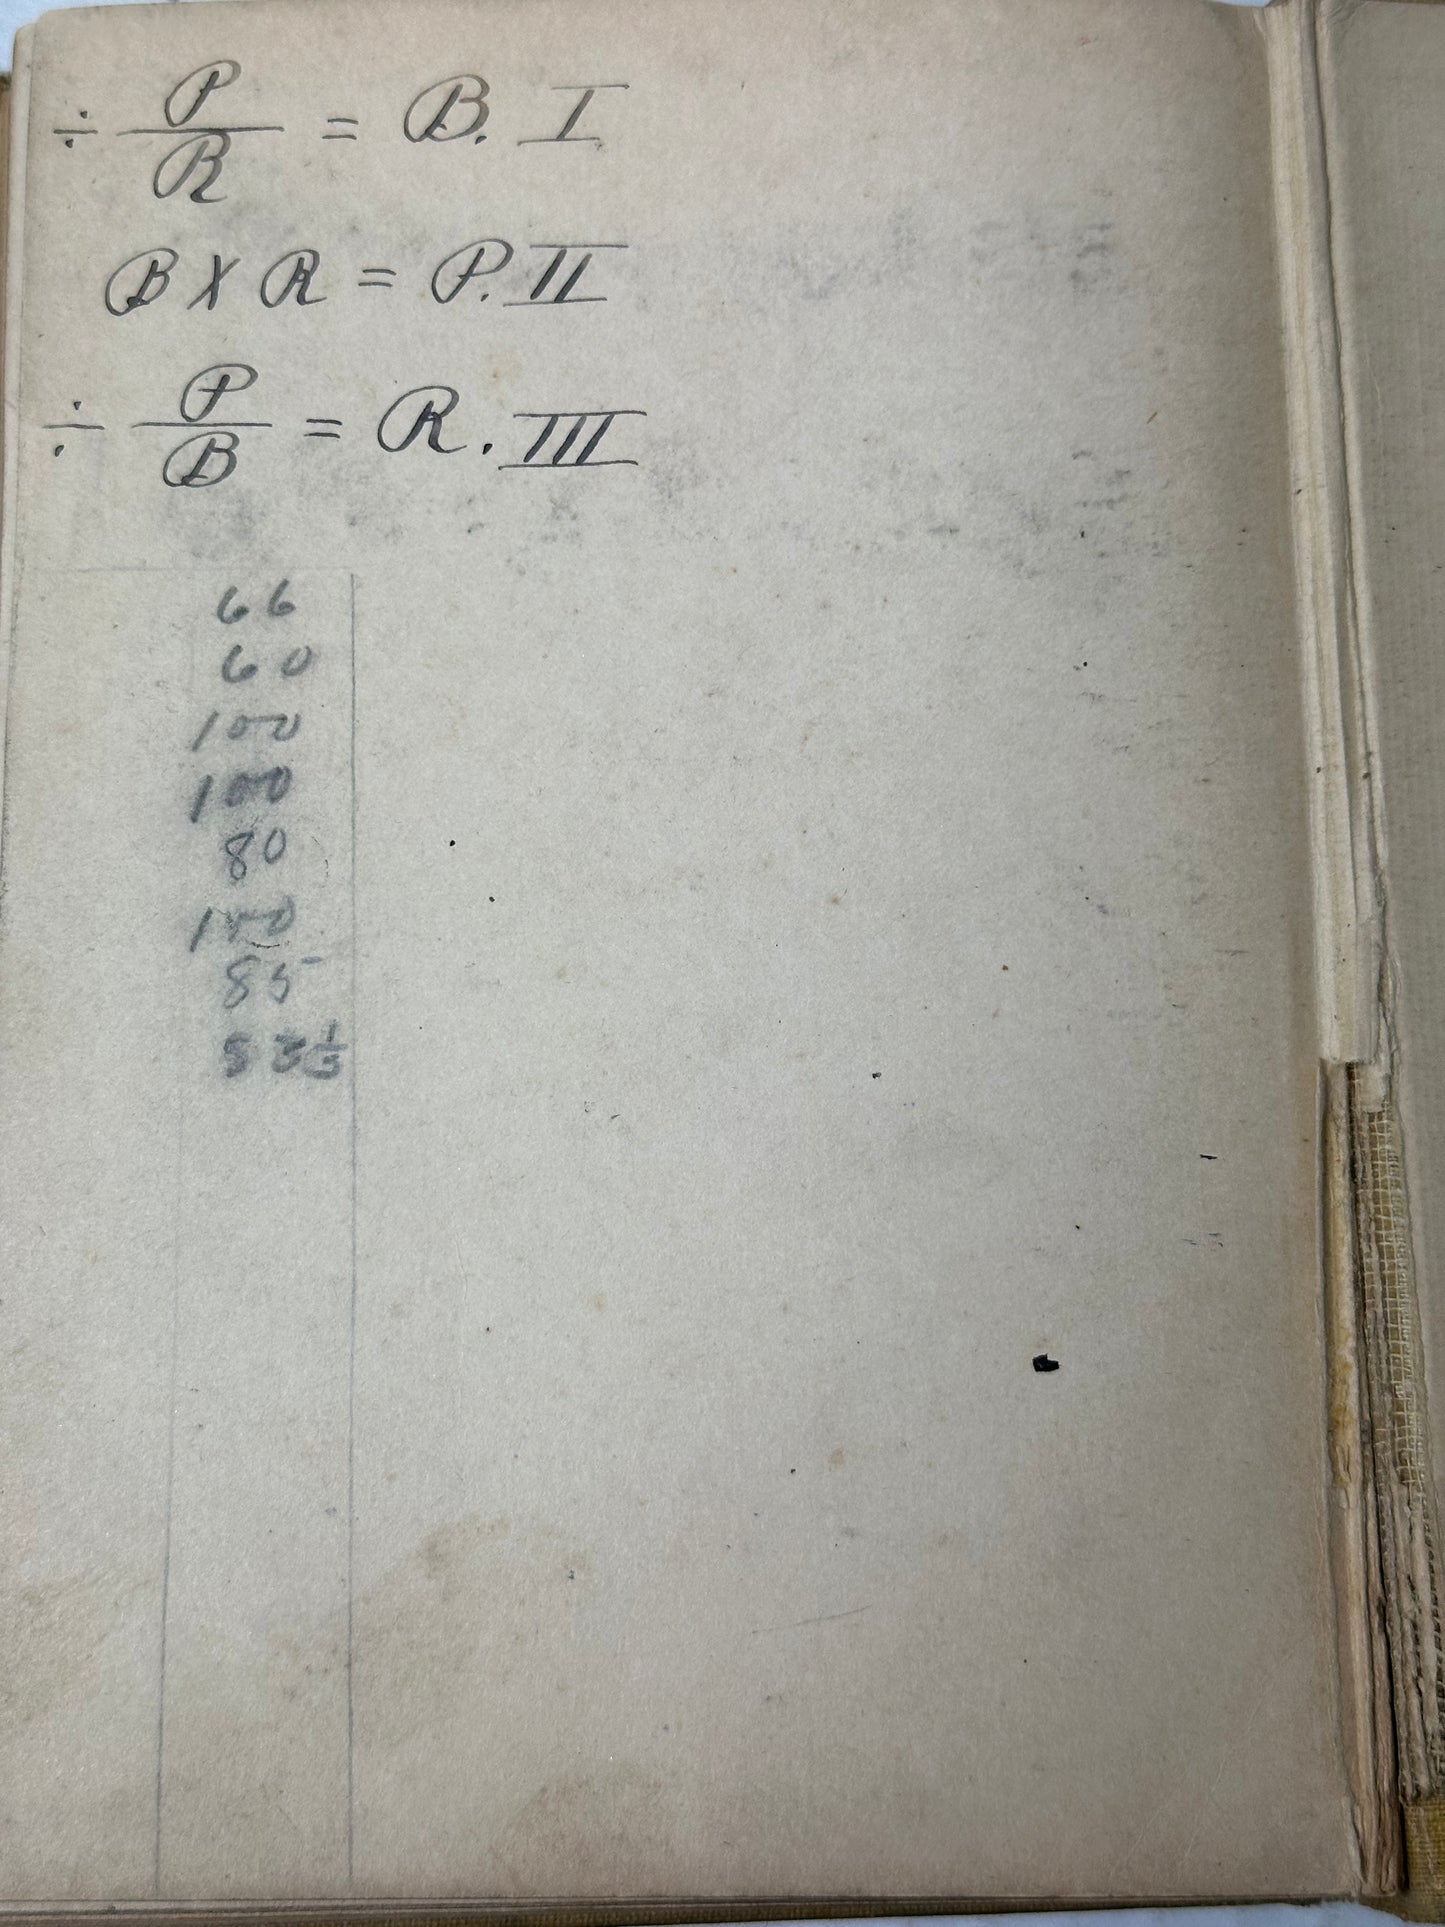 ÷ P/R = B. I
B X R = P. II
÷ P/B = R. III
66
60
100
100
80
100
85